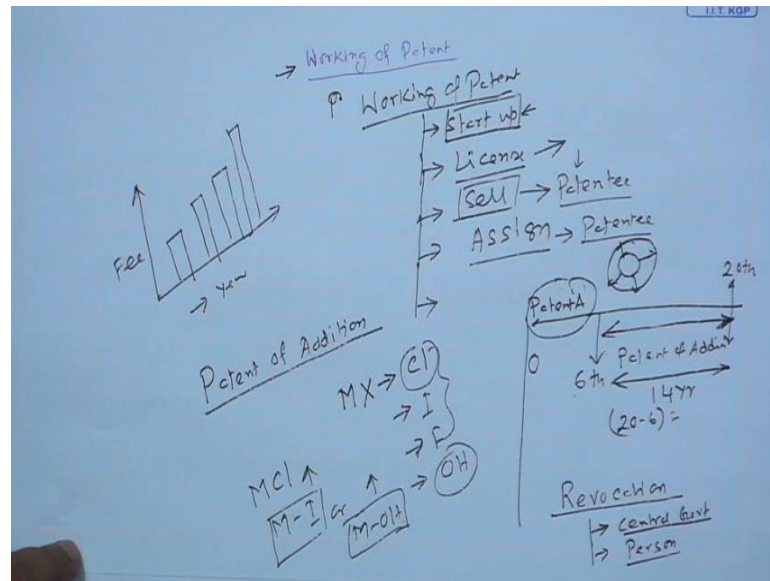 I.I.T. KGP
→ Working of Patent
Working of Patent
→ Start up ←
→ License →
→ Sell → Patentee
→ Assign → Patentee
→
Fee
→ Year
Patent of Addition
MX → Cl
→ I
→ F
→ OH
MCl ↑
M-I or M-OH
20th
Patent A
0
6th
Patent of Addin
14 yr
(20-6) =
Revocation
→ Central Govt
→ Person